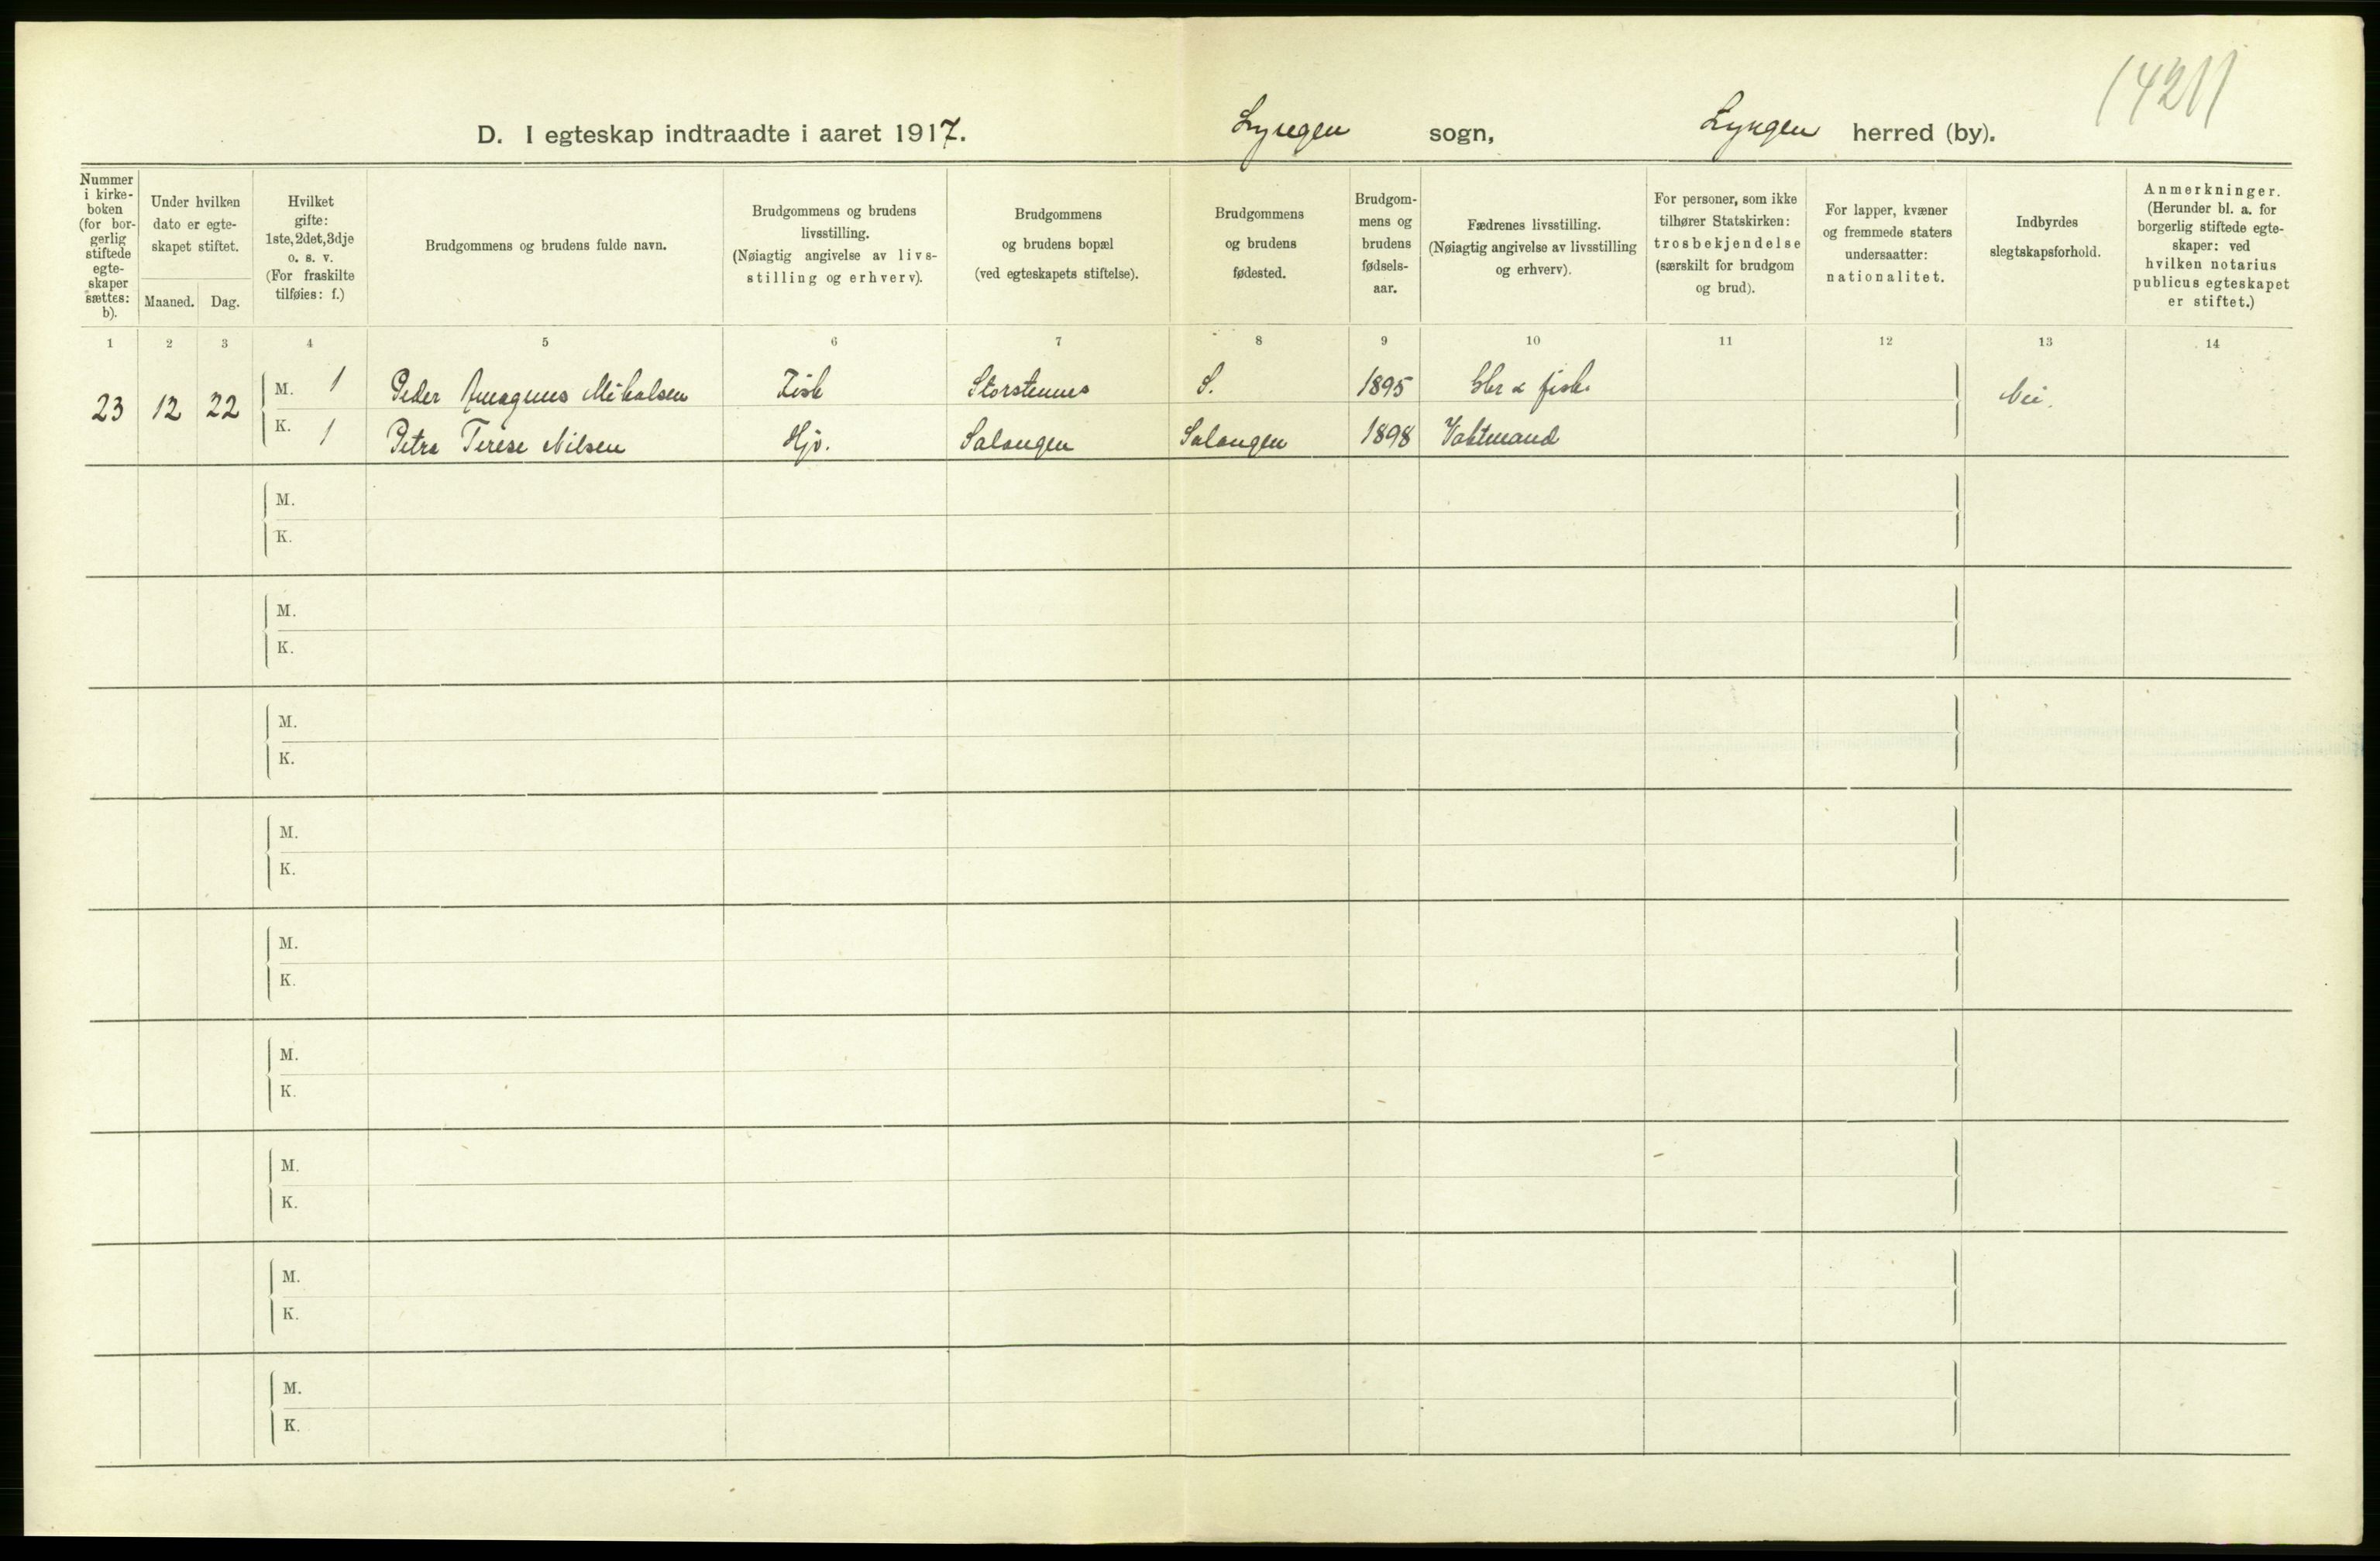 1421
D. I egteskap indtraadte i aaret 1917. Lyngen sogn, Lyngen herred (by).
Nummer i kirke-boken (for bor-gerlig stiftede egte-skaper sættes: b).
Under hvilken dato er egte-skapet stiftet.
Maaned. Dag.
Hvilket gifte: 1ste, 2det, 3dje o. s. v. (For fraskilte tilføies: f.)
Brudgommens og brudens fulde navn.
Brudgommens og brudens livsstilling. (Nøiagtig angivelse av livs-stilling og erhverv).
Brudgommens og brudens bopæl (ved egteskapets stiftelse).
Brudgommens og brudens fødested.
Brudgom-mens og brudens fødsels-aar.
Fædrenes livsstilling. (Nøiagtig angivelse av livsstilling og erhverv).
For personer, som ikke tilhører Statskirken: trosbekjendelse (særskilt for brudgom og brud).
For lapper, kvæner og fremmede staters undersaatter: nationalitet.
Indbyrdes slegtskapsforhold.
Anmerkninger. (Herunder bl. a. for borgerlig stiftede egte-skaper: ved hvilken notarius publicus egteskapet er stiftet.)
1 2 3 4 5 6 7 8 9 10 11 12 13 14
23 12 22 M. 1 Peder Mikalsen Fisk Storstennes S. 1895 & fisk. Nei.
K. 1 Petra Terese Nilsen Hjv. Salangen Salangen 1898 Vaktmand
M.
K.
M.
K.
M.
K.
M.
K.
M.
K.
M.
K.
M.
K.
M.
K.
M.
K.